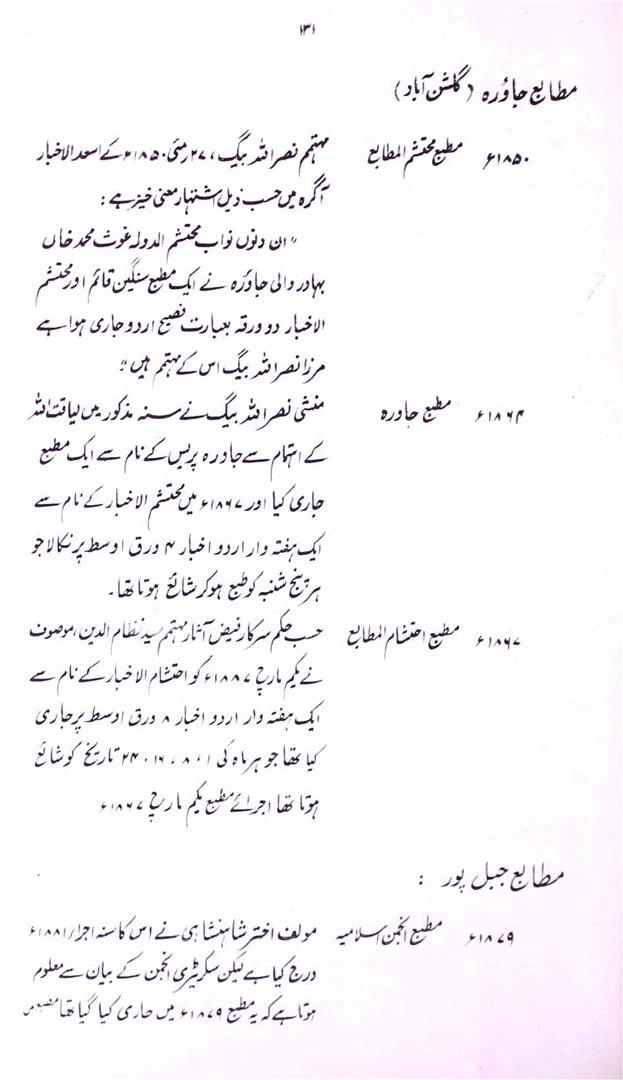 ۱۳۱
مطابع جاؤرہ (گلشن آباد)
۱۸۵۰ء مطبع محتشم المطابع مہتمم نصر اللہ بیگ، ۲۷ مئی ۱۸۵۰ء کے اسعد الاخبار
آگرہ میں حسب ذیل اشتہار معنی خیز ہے :
"ان دنوں نواب محتشم الدولہ غوث محمد خاں
بہادر والی جاؤرہ نے ایک مطبع سنگین قائم اور محتشم
الاخبار دو ورقہ بعبارت فصیح اردو جاری ہوا ہے
مرزا نصر اللہ بیگ اس کے مہتمم ہیں"
۱۸۶۴ء مطبع جاورہ منشی نصر اللہ بیگ نے سنہ مذکور میں لیاقت اللہ
کے اہتمام سے جاورہ پریس کے نام سے ایک مطبع
جاری کیا اور ۱۸۶۷ء میں محتشم الاخبار کے نام سے
ایک ہفتہ وار اردو اخبار ۴ ورق اوسط پر نکالا جو
ہر پنج شنبہ کو طبع ہو کر شائع ہوتا تھا۔
۱۸۶۷ء مطبع احتشام المطابع حسب حکم سرکار فیض آثار مہتمم سید نظام الدین، موصوف
نے یکم مارچ ۱۸۸۷ء کو احتشام الاخبار کے نام سے
ایک ہفتہ وار اردو اخبار ۸ ورق اوسط پر جاری
کیا تھا جو ہر ماہ کی ۱، ۸، ۱۶، ۲۴ تاریخ کو شائع
ہوتا تھا اجرائے مطبع یکم مارچ ۱۸۶۷ء
مطابع جبل پور :
۱۸۷۹ء مطبع انجمن اسلامیہ مولف اختر شاہنشاہی نے اس کا سنہ اجراء ۱۸۸۱ء
درج کیا ہے لیکن سکریٹری انجمن کے بیان سے معلوم
ہوتا ہے کہ یہ مطبع ۱۸۷۹ء میں جاری کیا گیا تھا